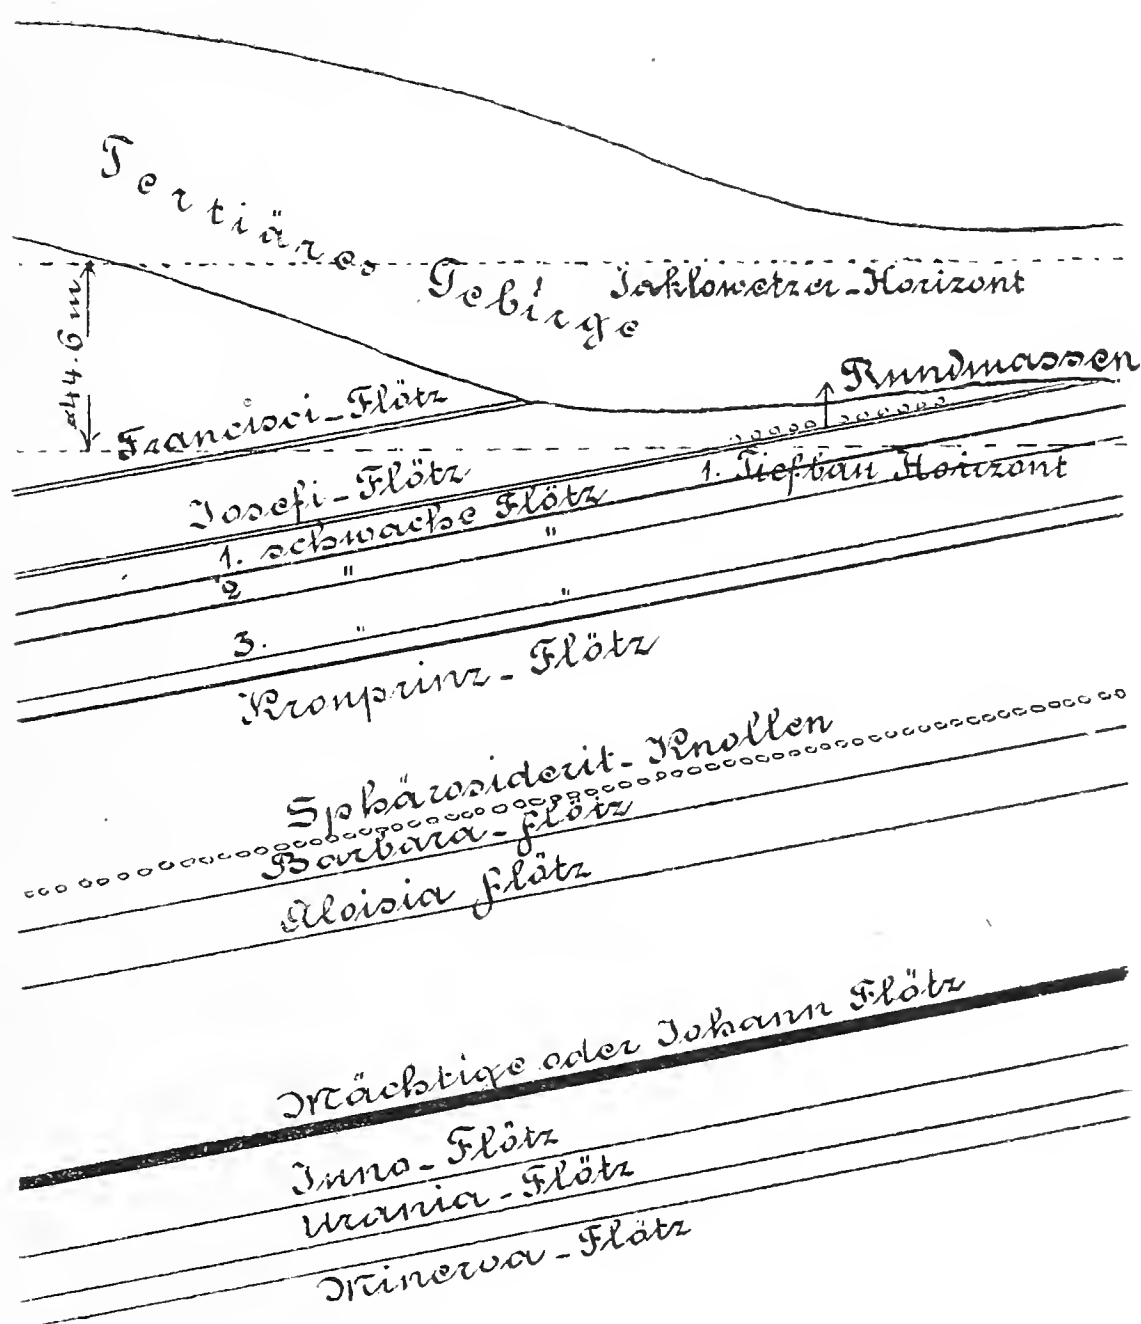 Tertiäres Gebirge
Jaklowetzer-Horizont
Rundmassen
Francisci-Flötz
1. Tiefbau Horizont
Josefi-Flötz
1. schwache Flötz
2 " "
3. " "
Kronprinz-Flötz
Sphärosiderit-Knollen
Barbara-Flötz
Aloisia Flötz
Mächtige oder Johann Flötz
Juno-Flötz
Urania-Flötz
Minerva-Flötz